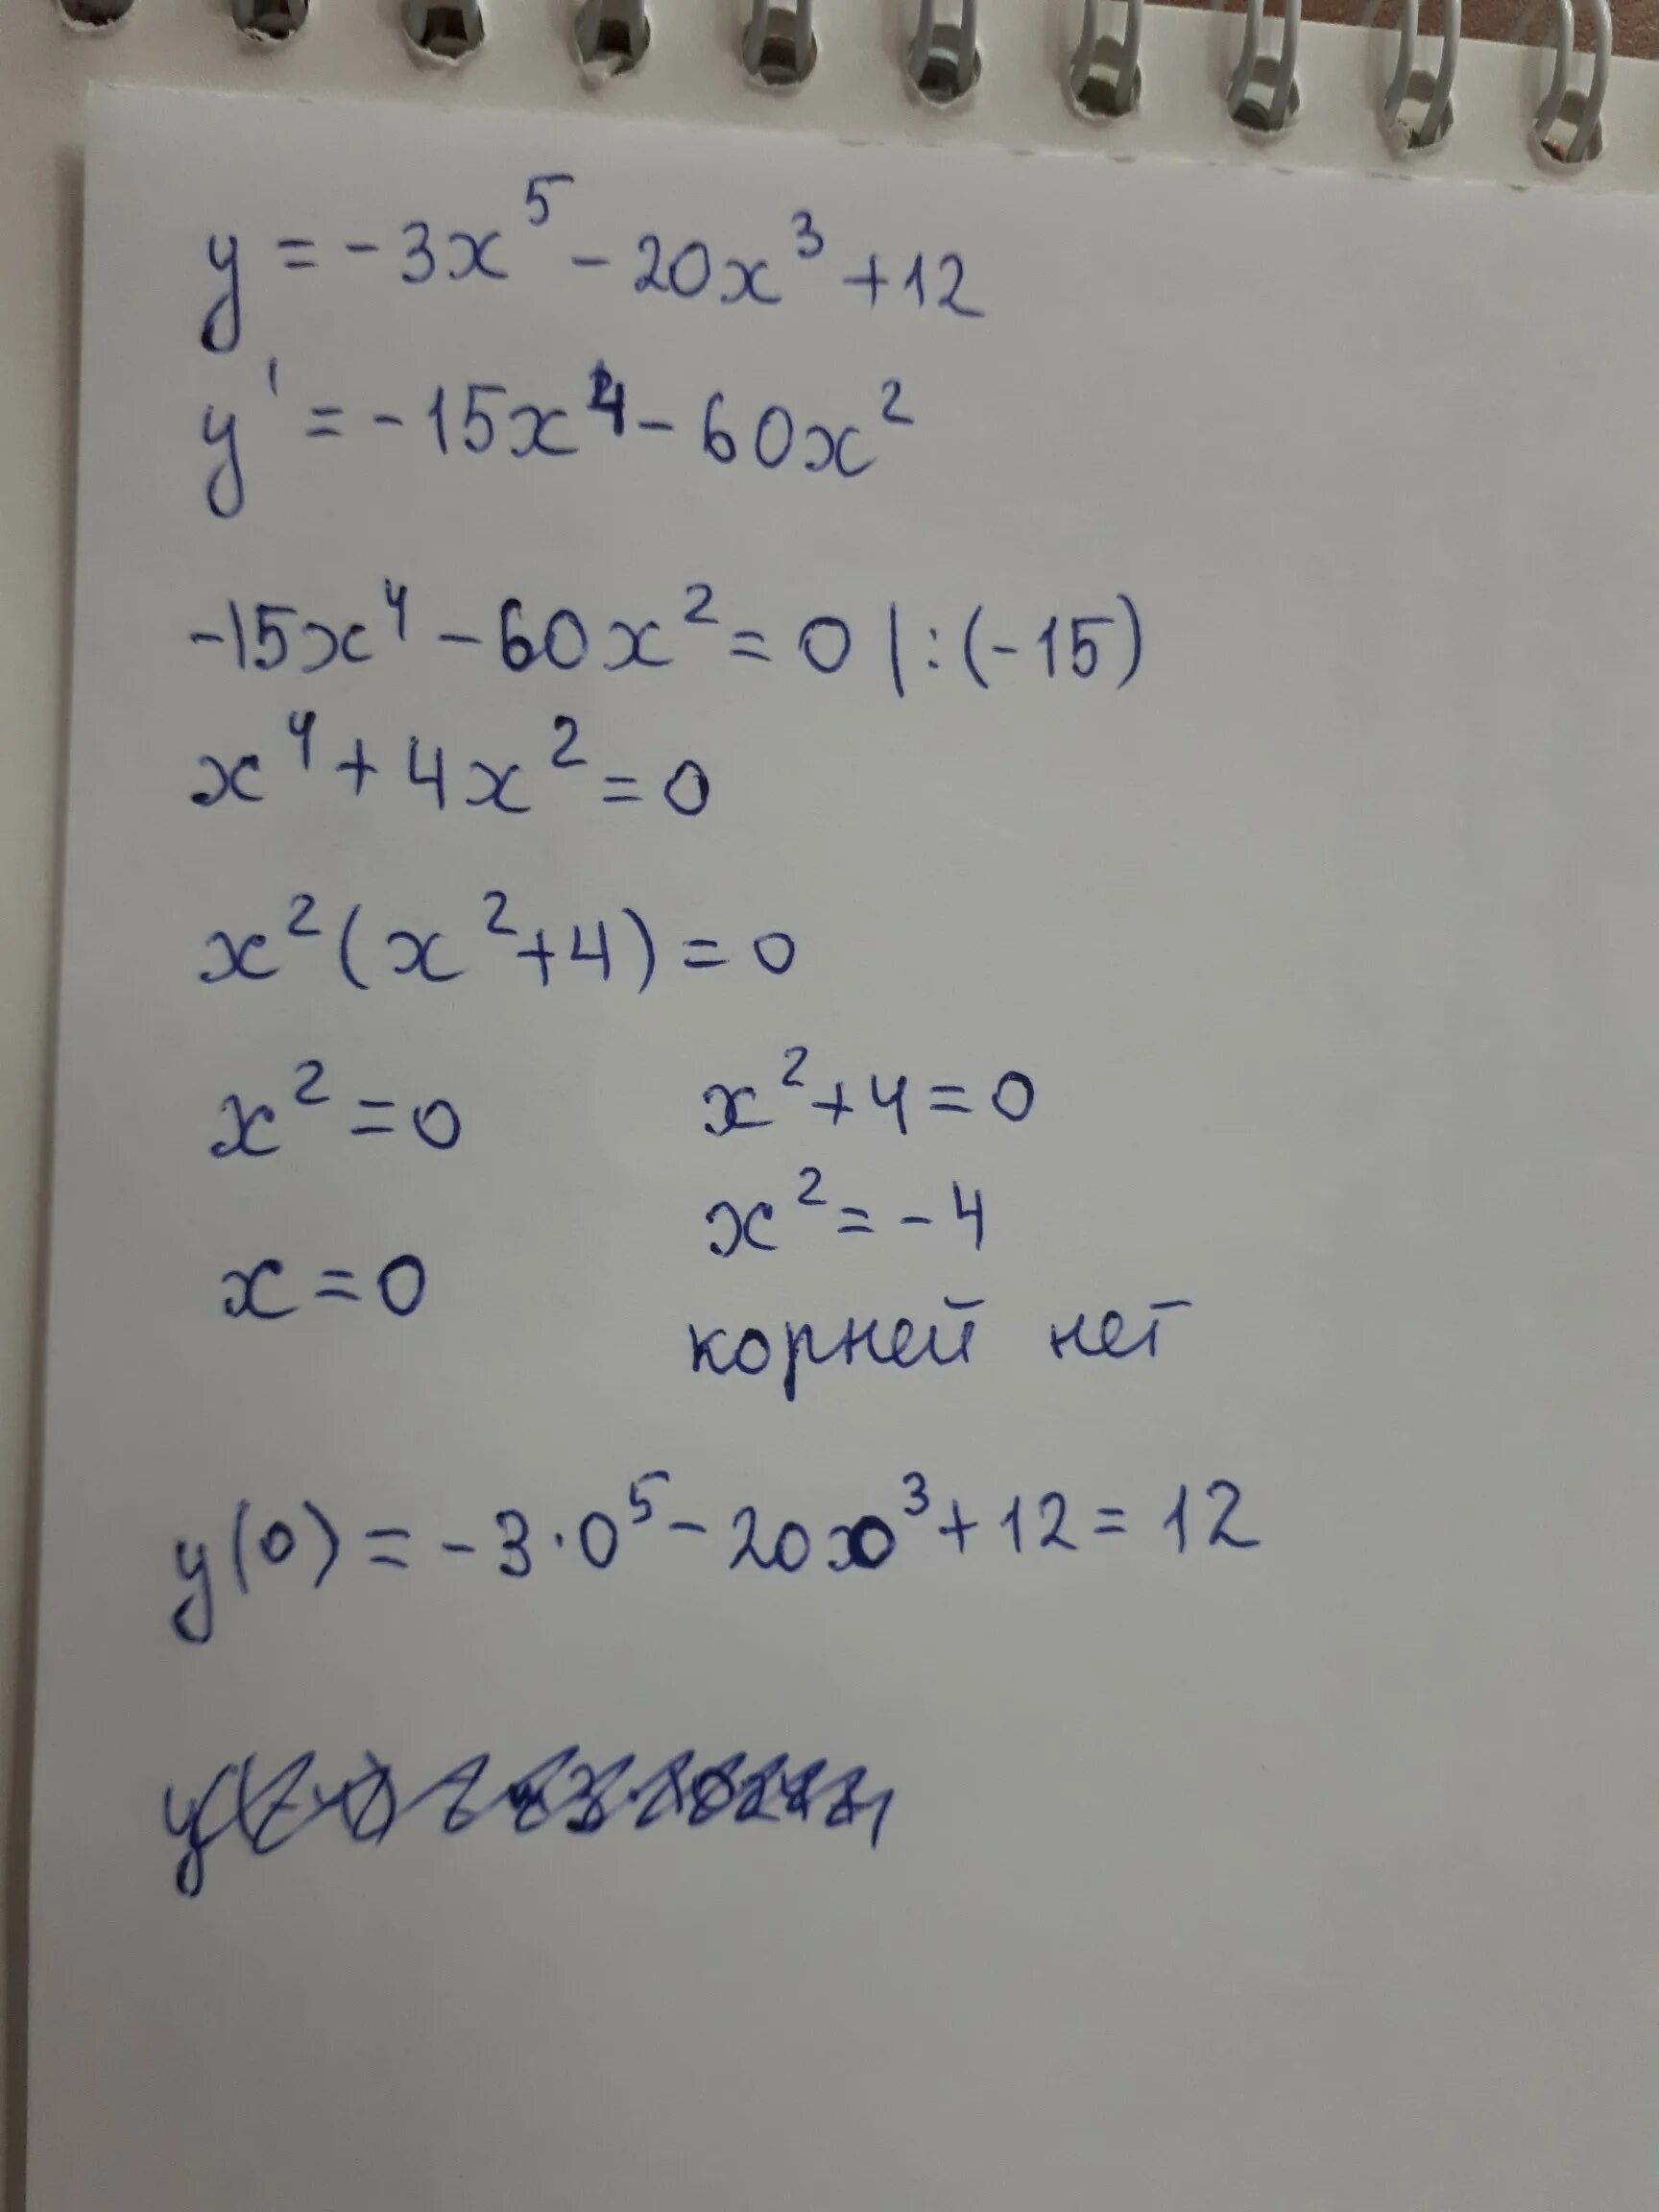 y = -3x⁵ - 20x³ + 12
y' = -15x⁴ - 60x²
-15x⁴ - 60x² = 0 |:(-15)
x⁴ + 4x² = 0
x²(x² + 4) = 0
x² = 0
x = 0
x² + 4 = 0
x² = -4
корней нет
y(0) = -3·0⁵ - 20x0³ + 12 = 12